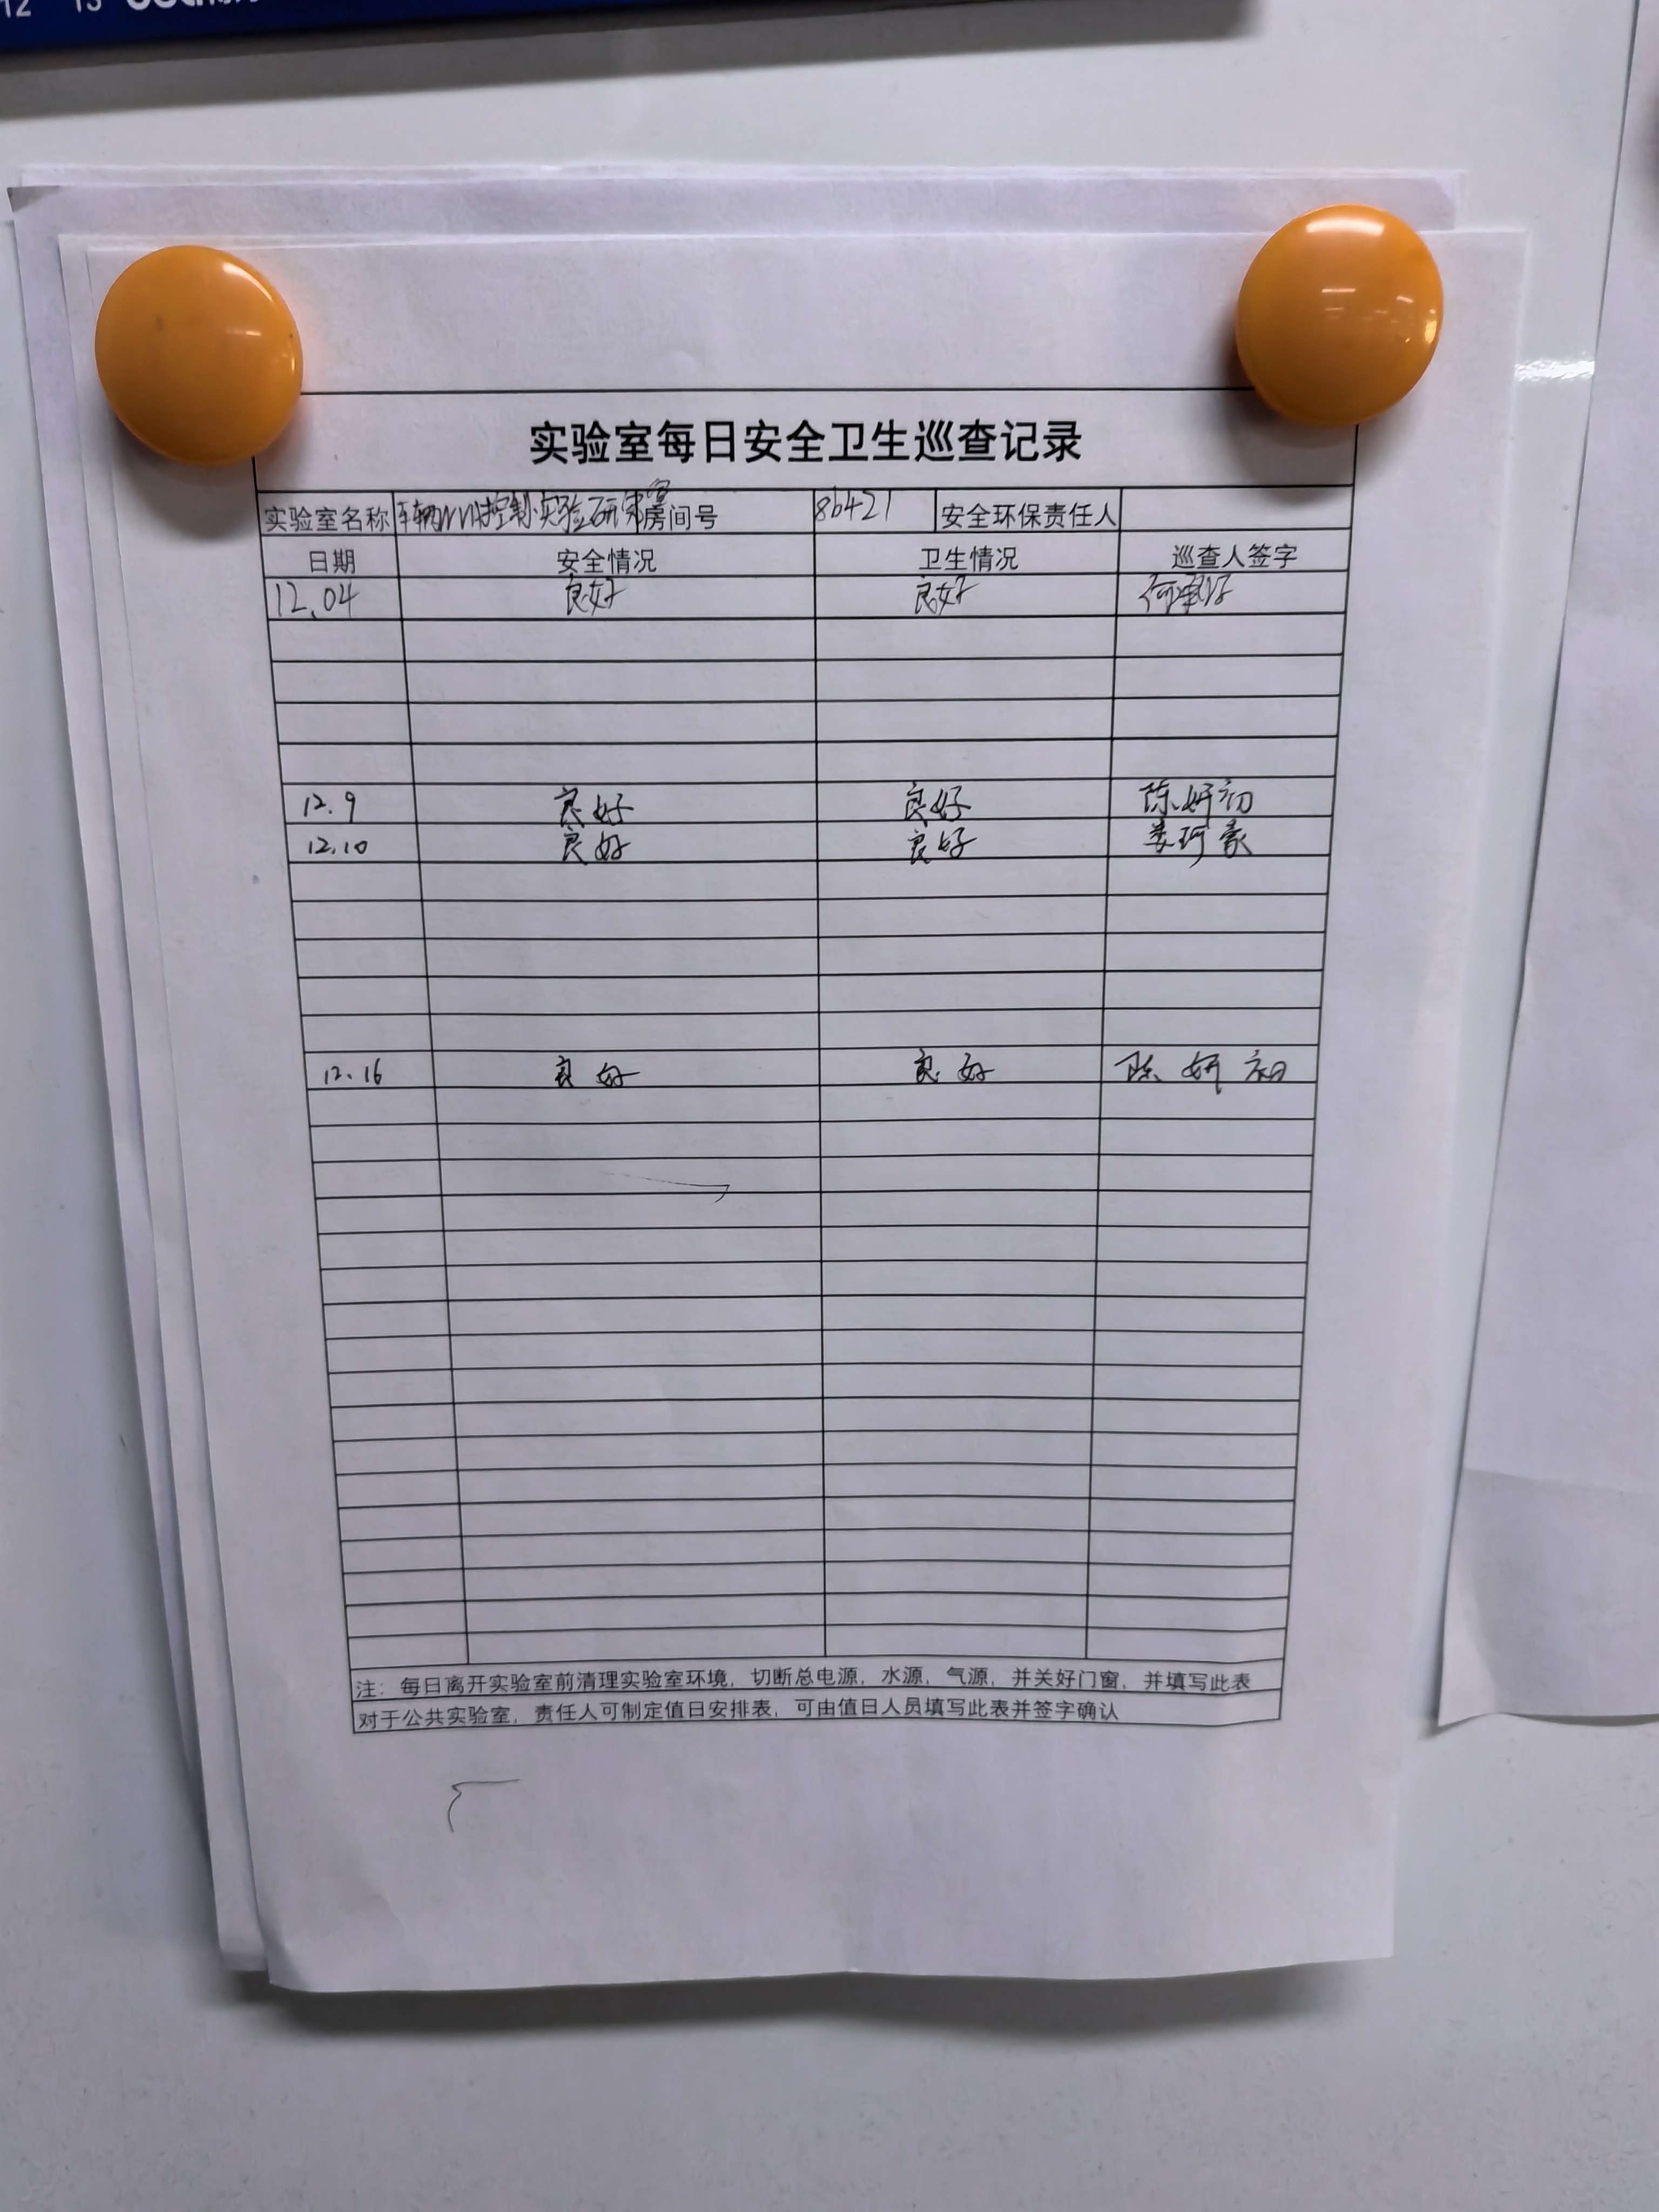 12 13
实验室每日安全卫生巡查记录
实验室名称 车辆 控制实验研究室 房间号 8b421 安全环保责任人
日期 安全情况 卫生情况 巡查人签字
12.04 良好 良好 何
12.9 良好 良好 陈妍初
12.10 良好 良好 娄珂豪
12.16 良好 良好 陈妍初
注：每日离开实验室前清理实验室环境，切断总电源，水源，气源，并关好门窗，并填写此表
对于公共实验室，责任人可制定值日安排表，可由值日人员填写此表并签字确认